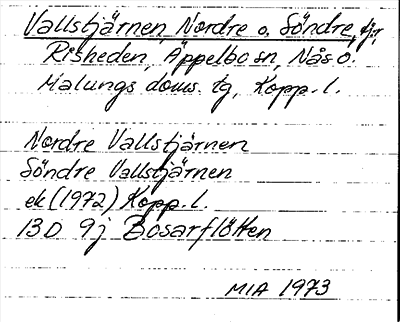 Vallstjärnen, Nordre o. Söndre, tjr,
Risheden, Äppelbo sn, Nås o.
Malungs doms. tg, Kopp. l.
Nordre Vallstjärnen
Söndre Vallstjärnen
ek (1972) Kopp. l.
13D 9j Bosarflötten
MIA 1973